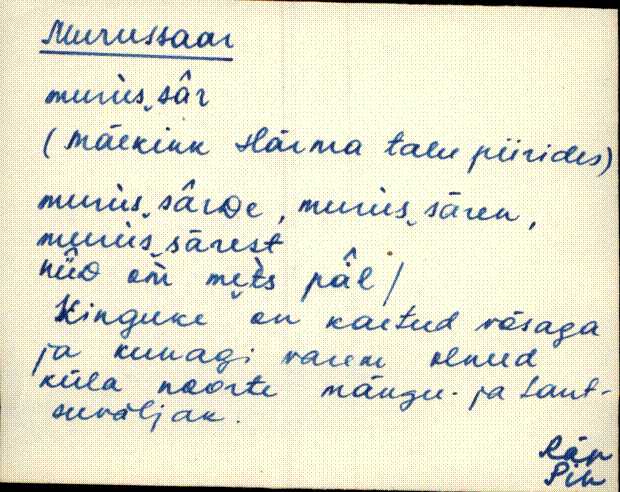 Murussaar
murus̬ sâr
(Mäekink Härma talu piirides)
murus̬ sârDe, murus̬ sâren,
murus̬ sârest
nüD om mets pâl /
Kinguke on kaetud võsaga
ja kunagi varem olnud
küla noorte mängu- ja tant-
suväljak.
Räp